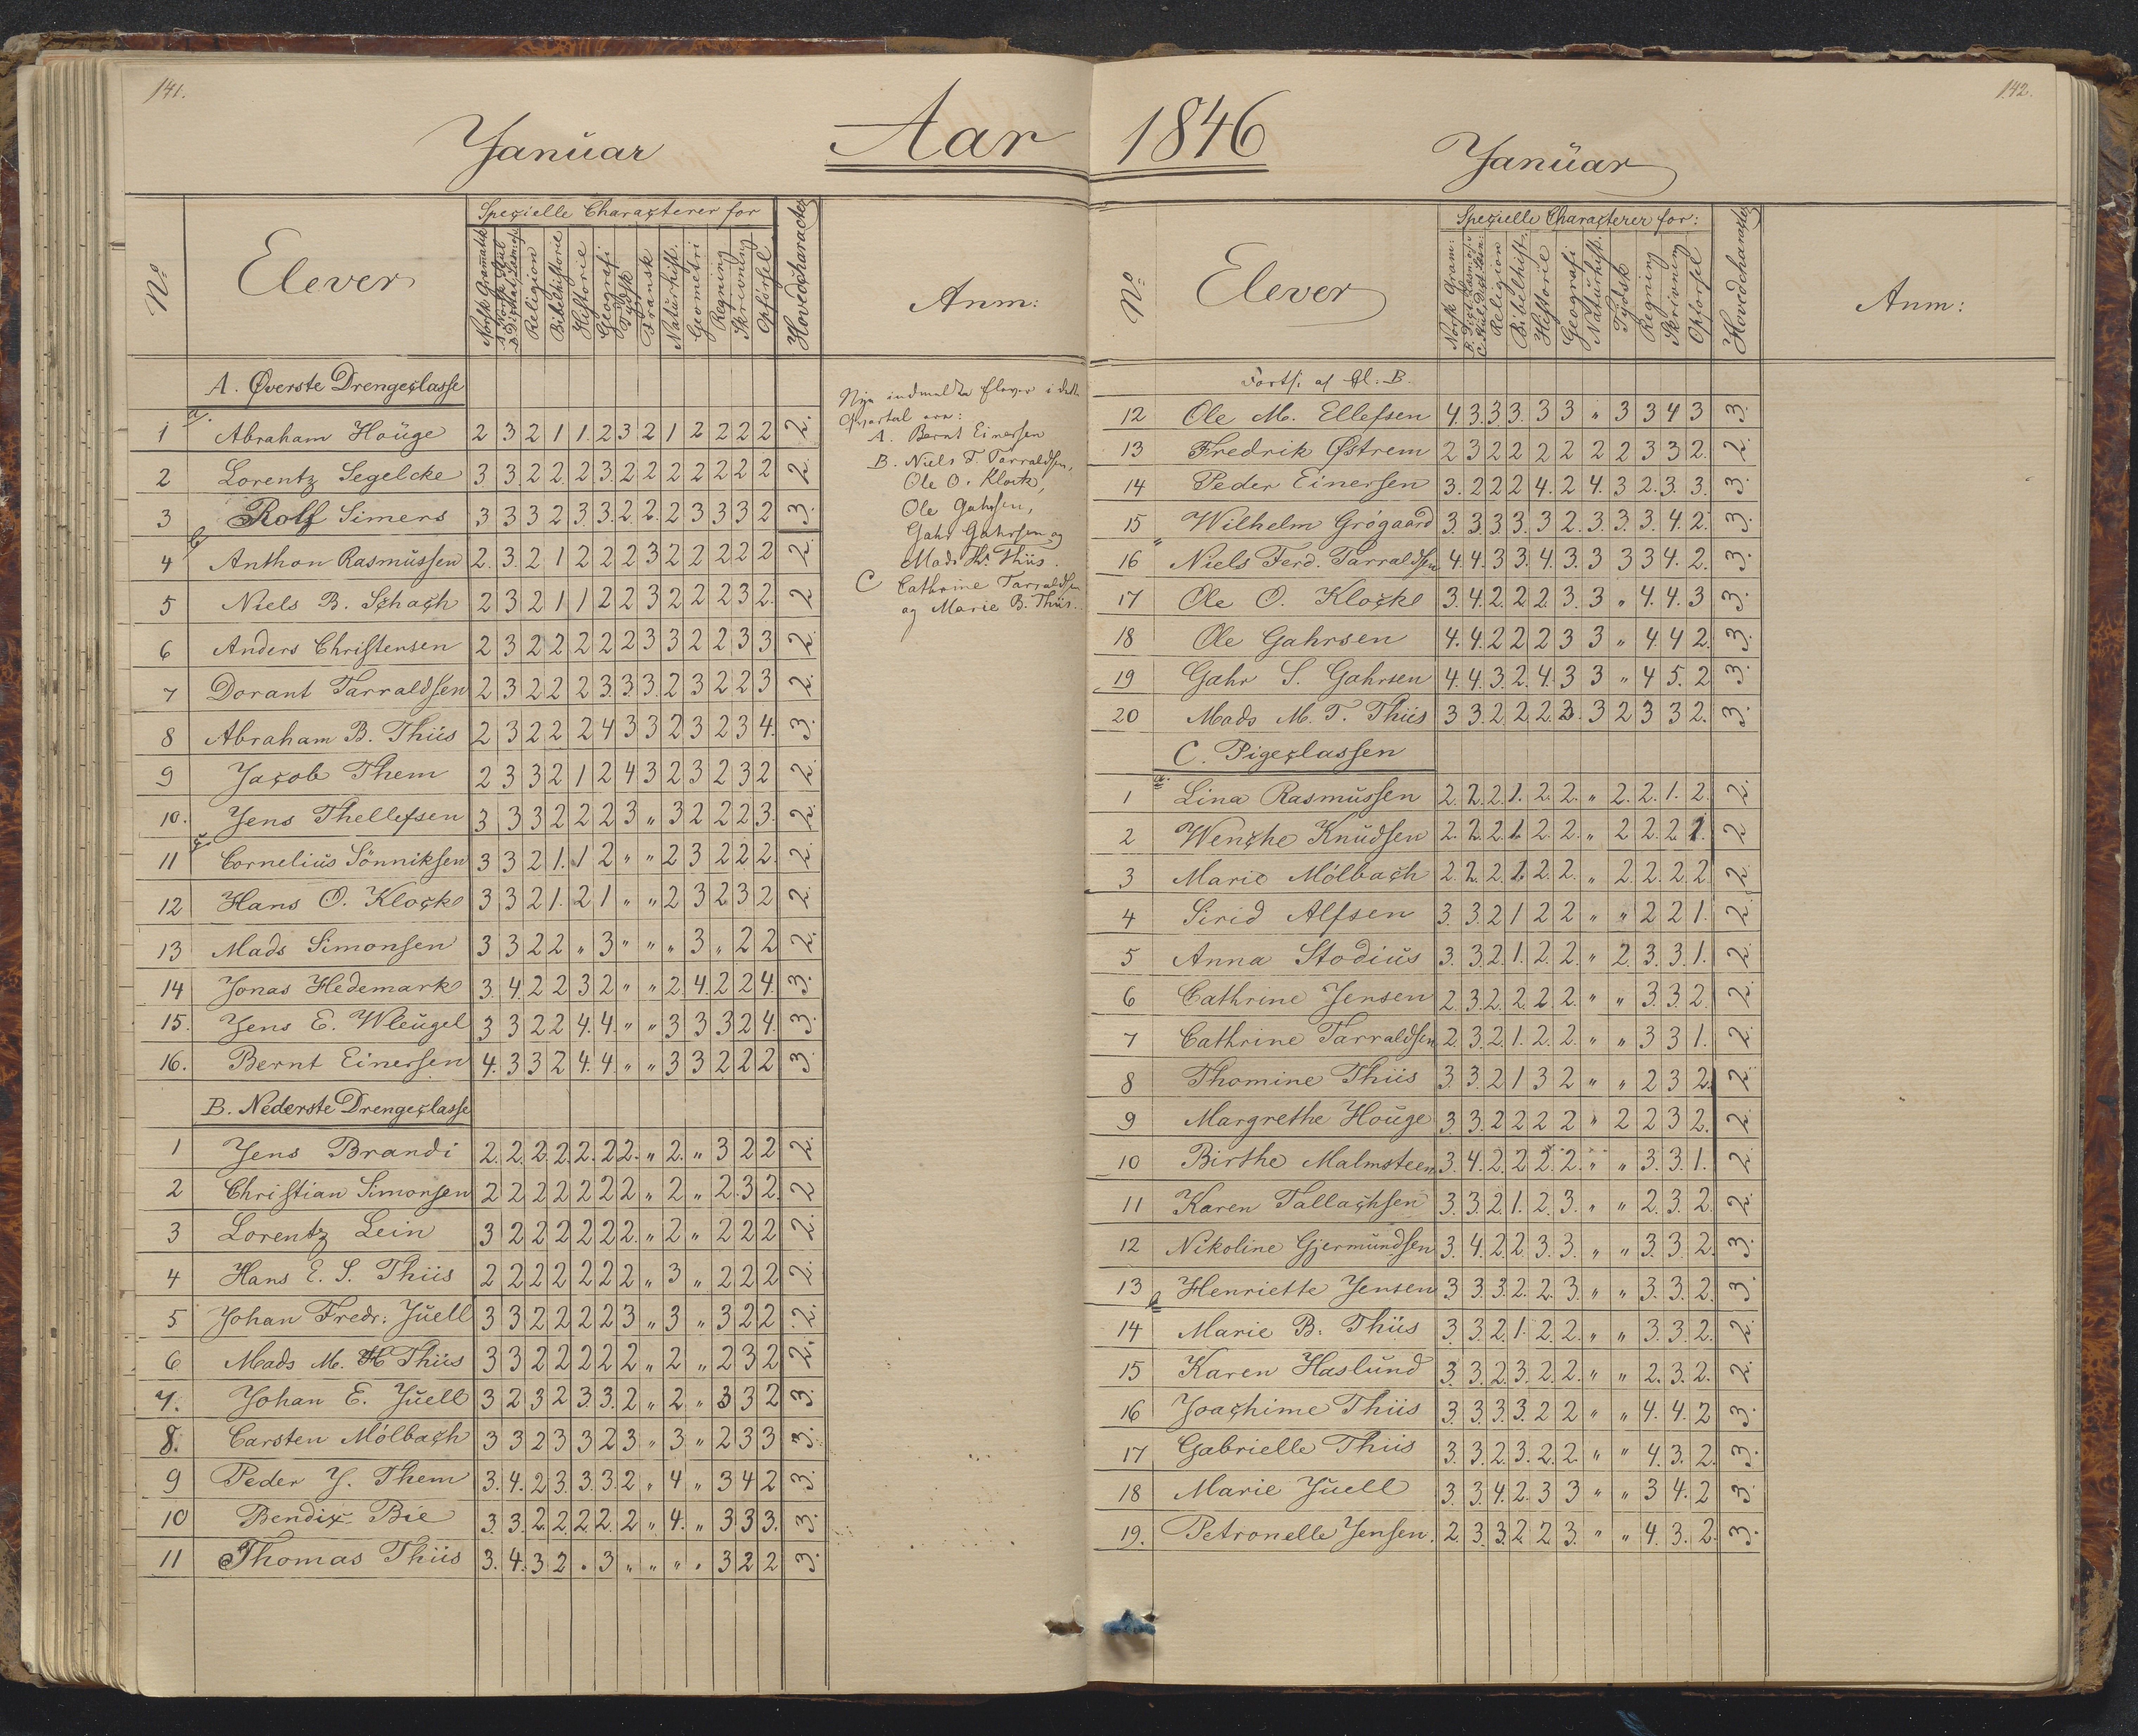 141.
Januar
Aar
No
Elever
Specielle Characterer for
Norsk Gramatik
Religion
Bibelhistorie
Historie
Geografi
Tydsk
Fransk
Naturhist.
Geometri
Regning
Skrivning
Opførsel
Hovedcharacter
Anm:
A. Øverste Drengeclasse
1 Abraham Houge 2 3 2 1 1. 2 3 2 1 2 2 2 2 2.
2 Lorentz Segelcke 3 3 2 2. 2 3. 2 2 2 2 2 2 2 2.
3 Rolf Simers 3 3 3 2 3. 3. 2. 2. 2 3 3 3 2 3.
4 Anthon Rasmussen 2. 3. 2 1 2 2 2 3 2 2 2 2 2 2.
5 Niels B. Schach 2 3 2 1 1 2 2 3 2 2 2 3 2. 2
6 Anders Christensen 2 3 2 2 2 2 2 3 3 2 2 3 3 2.
7 Dorant Tarraldsen 2 3 2 2 2 3. 3. 3. 2 3 2 2 3 2.
8 Abraham B. Thiis 2 3 2 2 2 4 3 3 2 3 2 3 4. 3.
9 Jacob Them 2 3 3 2 1 2 4 3 2 3 2 3 2 2.
10. Jens Thellefsen 3 3 3 2 2 2 3 „ 3 2 2 2 3. 2.
11 Cornelius Sönniksen 3 3 2 1. 1 2 „ „ 2 3 2 2 2. 2.
12 Hans O. Klocke 3 3 2 1. 2 1 „ „ 2 3 2 3 2 2.
13 Mads Simonsen 3 3 2 2 „ 3 „ „ „ 3 „ 2 2 2.
14 Jonas Hedemark 3. 4. 2 2 3 2 „ „ 2. 4. 2 2 4. 3.
15. Jens E. Wleugel 3 3 2 2 4. 4. „ „ 3 3 3 2 4. 3.
16. Bernt Einersen 4. 3 3 2 4. 4. „ „ 3 3 2 2 2 3.
B. Nederste Drengeclasse
1 Jens Brandi 2. 2. 2. 2. 2. 2 2. „ 2. „ 3 2 2 2.
2 Christian Simonsen 2 2 2 2 2 2 2 „ 2 „ 2. 3 2. 2
3 Lorentz Lein 3 2 2 2 2 2 2. „ 2 „ 2 2 2 2.
4 Hans E. S. Thiis 2 2 2 2 2 2 2 „ 3 „ 2 2 2 2.
5 Johan Fredr: Juell 3 3 2 2 2 2 3 „ 3 „ 3 2 2 2.
6 Mads M. H Thiis 3 3 2 2 2 2 2 „ 2 „ 2 3 2 2.
7. Johan E. Juell 3 2 3 2 3. 3. 2 „ 2 „ 3 3 2 3.
8. Carsten Mölbach 3 3 2 3 3 2 3 „ 3 „ 2 3 3 3.
9 Peder J. Them 3. 4. 2 3. 3. 3. 2 „ 4 „ 3 4 2 3.
10 Bendix Bie 3. 3. 2. 2. 2. 2. 2 „ 4. „ 3 3 3. 3.
11 Thomas Thiis 3. 4. 3 2 . 3 „ „ „ „ 3 2 2 3.
Nye indmeldte Elever i dette
Qvartal ere:
A. Bernt Einersen
B. Niels F. Tarraldsen,
Ole O. Klocke,
Ole Gahrsen,
Gahr Gahrsen og
Mads Th. Thiis.
C Cathrine Tarraldsen
og Marie B. Thiis.
142.
1846
Januar
No
Elever
Specielle Characterer for:
Norsk Gram:
Religion
Bibelhist.
Historie
Geografi
Naturhist.
Tydsk
Regning
Skrivning
Opførsel
Hovedcharacter
Anm:
Forts. af Cl. B.
12 Ole M. Ellefsen 4. 3. 3. 3. 3 3 „ 3 3 4 3 3.
13 Fredrik Østrem 2 3 2 2 2 2 2 2 3 3 2. 2.
14 Peder Einersen 3. 2 2 2 4. 2 4. 3 2. 3. 3. 3.
15 Wilhelm Grögaard 3. 3. 3. 3. 3 2. 3. 3. 3. 4. 2. 3.
16 Niels Ferd. Tarraldsen 4. 4. 3 3. 4. 3. 3 3 3 4. 2. 3.
17 Ole O. Klocke 3. 4. 2. 2. 2. 3. 3 „ 4. 4. 3 3.
18 Ole Gahrsen 4. 4. 2 2 2 3 3 „ 4 4 2. 3.
19 Gahr S. Gahrsen 4. 4. 3. 2. 4. 3 3 „ 4 5. 2 3.
20 Mads M. T. Thiis 3 3. 2 2. 2. 3. 3 2 3 3 2. 3.
C. Pigeclassen
1 Lina Rasmussen 2. 2. 2. 1. 2. 2. „ 2. 2. 1. 2. 2.
2 Wenche Knudsen 2. 2. 2 1. 2 2. „ 2 2. 2 1. 2
3 Marie Mölbach 2. 2. 2. 2. 2. 2. „ 2. 2. 2. 2. 2.
4 Sirid Alfsen 3. 3. 2 1 2 2 „ „ 2 2 1. 2.
5 Anna Stodius 3. 3. 2. 1. 2. 2. „ 2. 3. 3. 1. 2.
6 Cathrine Jensen 2. 3. 2. 2. 2. 2. „ „ 3. 3. 2. 2.
7 Cathrine Tarraldsen 2. 3. 2. 1. 2. 2. „ „ 3 3 1. 2.
8 Thomine Thiis 3. 3. 2 1 3 2 „ „ 2 3 2. 2.
9 Margrethe Houge 3. 3. 2 2 2 2 „ 2 2 3 2. 2.
10 Birthe Malmsteen 3. 4. 2. 2 2. 2. „ „ 3. 3. 1. 2.
11 Karen Tallachsen 3. 3. 2. 1. 2. 3. „ „ 2. 3. 2. 2.
12 Nikoline Gjermundsen 3. 4. 2. 2. 3. 3. „ „ 3. 3. 2. 3.
13 Henriette Jensen 3. 3. 3. 2. 2. 3. „ „ 3. 3. 2. 3.
14 Marie B. Thiis 3. 3. 2. 1. 2. 2. „ „ 3. 3. 2. 2.
15 Karen Haslund 3. 3. 2. 3. 2. 2. „ „ 2. 3. 2. 2.
16 Joachime Thiis 3. 3. 3. 3. 2 2 „ „ 4. 4. 2 3.
17 Gabrielle Thiis 3. 3. 2. 3. 2. 2. „ „ 4. 3. 2. 3.
18 Marie Juell 3. 3. 4. 2. 3 3 „ „ 3 4. 2 3.
19. Petronelle Jensen. 2. 3. 3. 2 2 3. „ „ 4. 3. 2. 3.